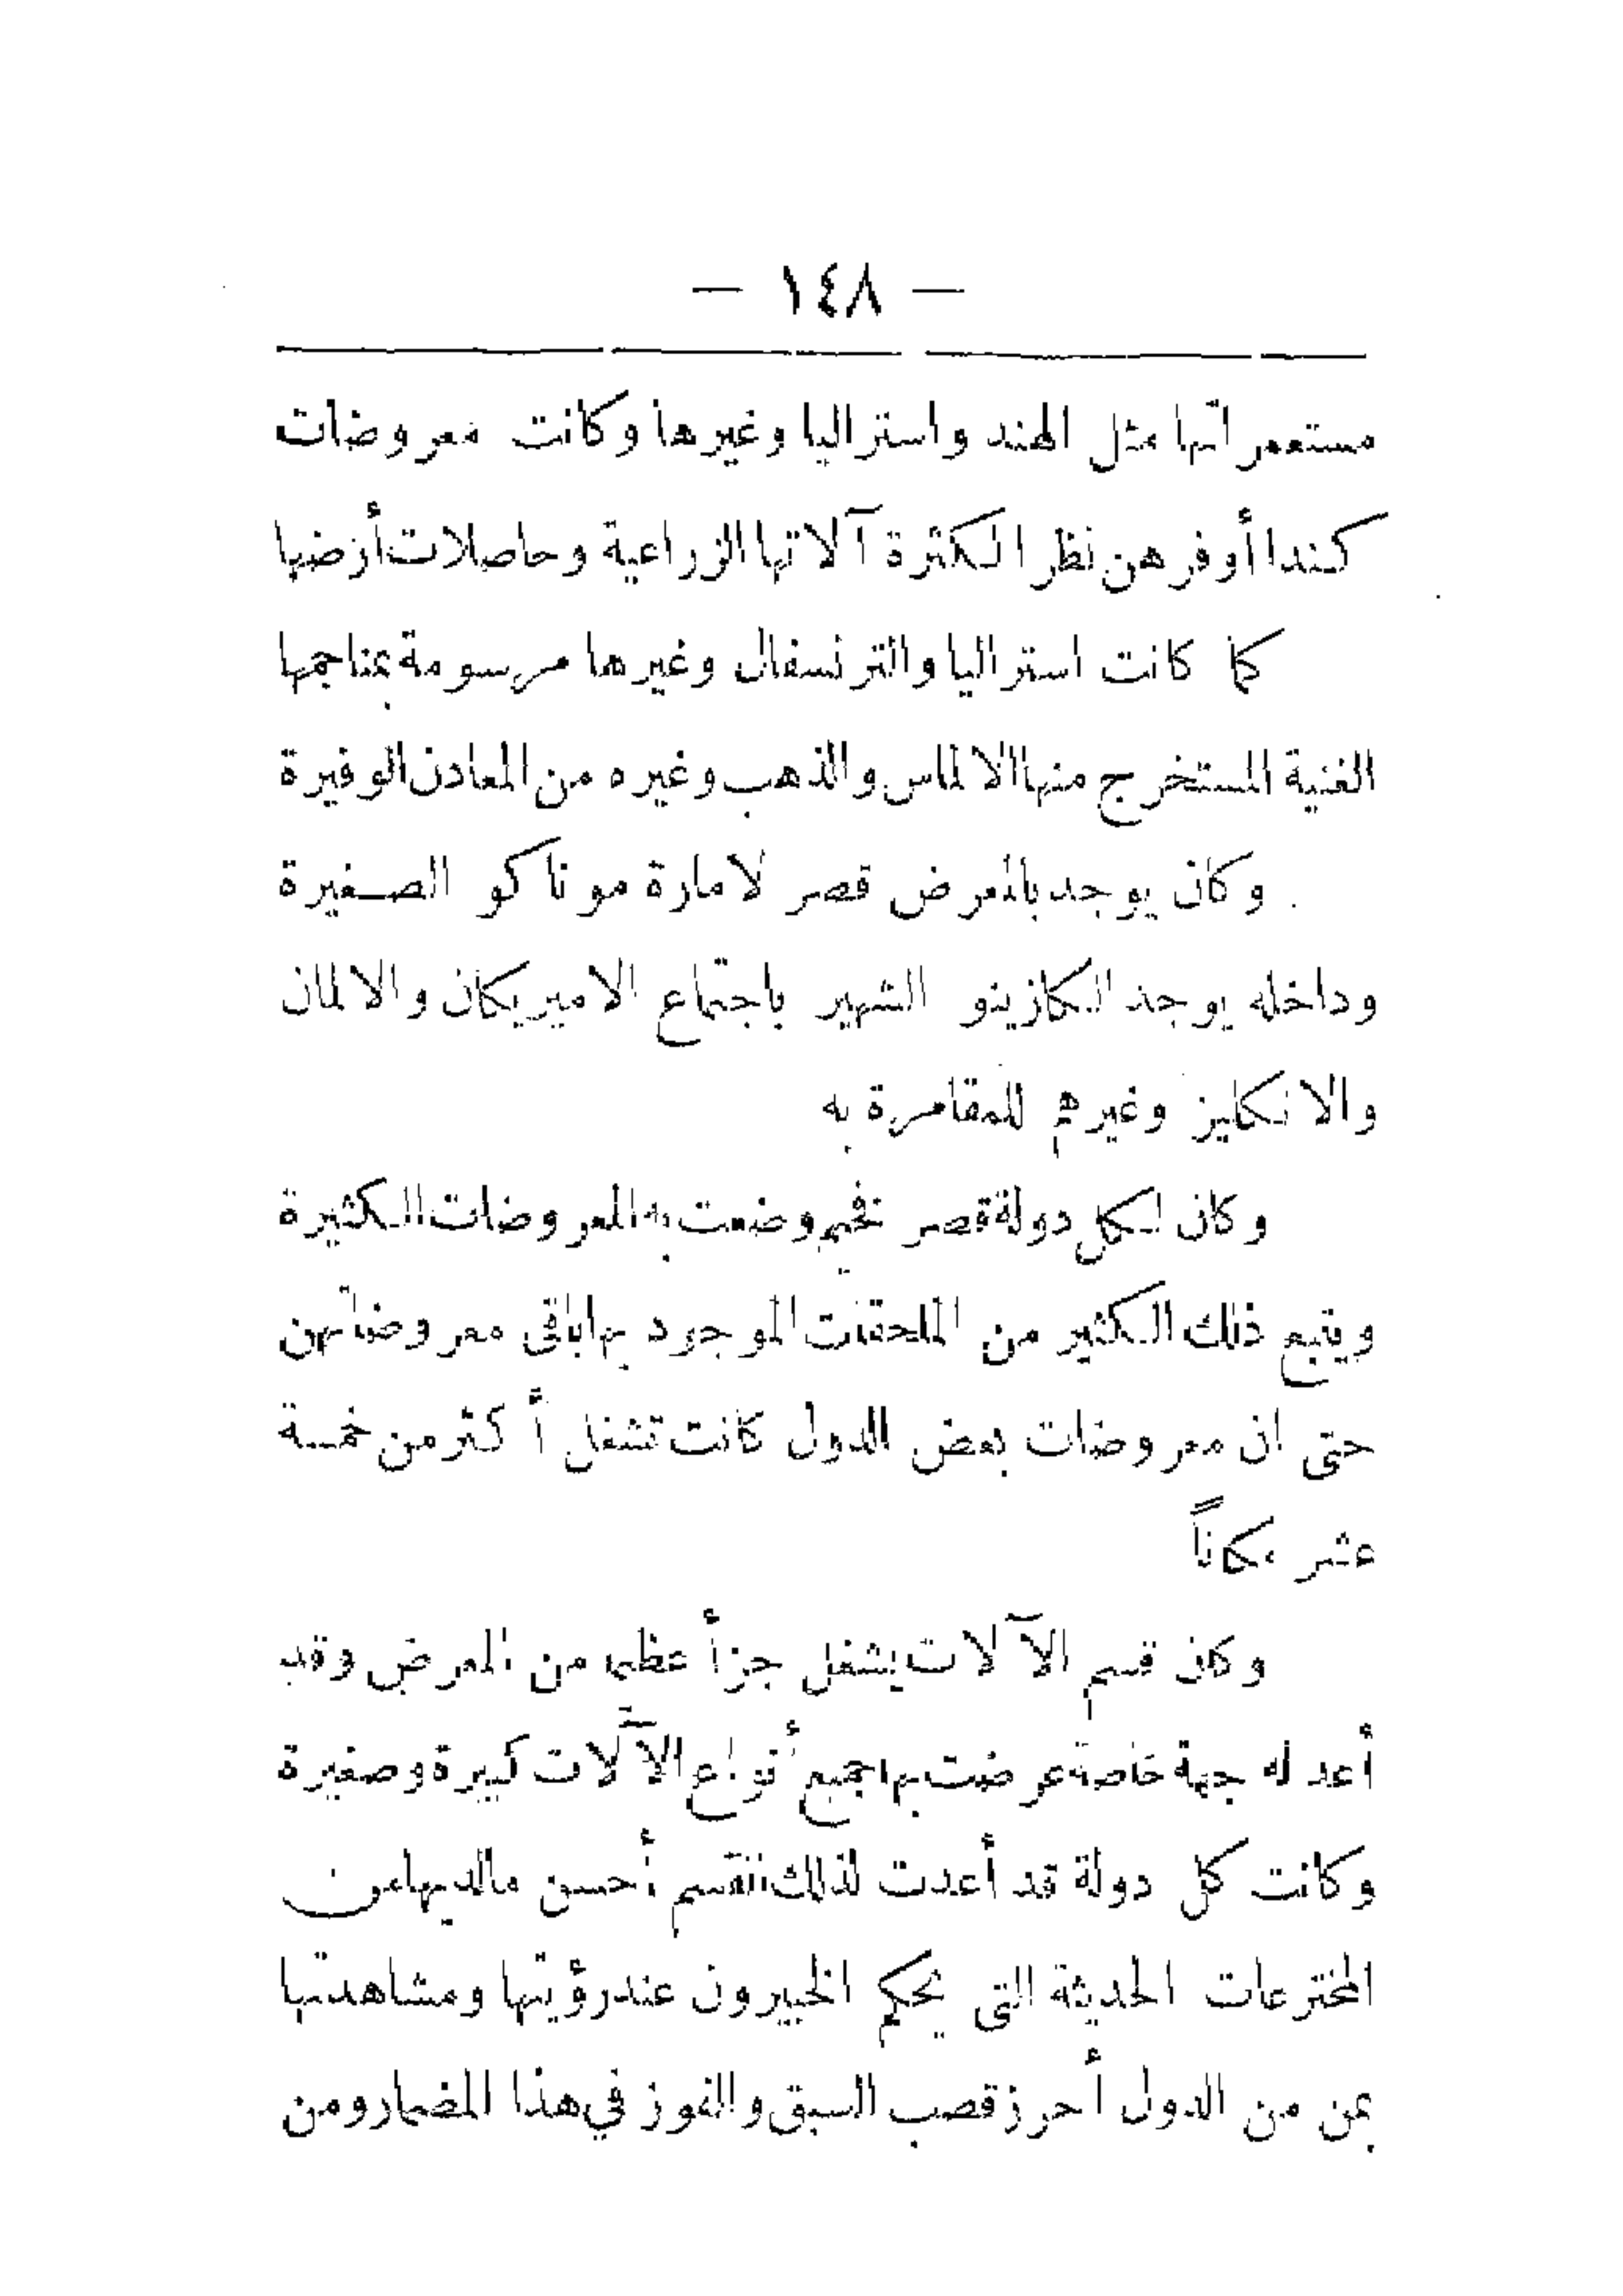 — ١٤٨ —
مستعمراتها مثل الهند واستراليا وغيرها وكانت معروضات
كندا أوفرهن نظرا لكثرة آلاتها الزراعية وحاصلات أرضها
كما كانت استراليا والترنسفال وغيرها مرسومة بمناجمها
الغنية المستخرج منها الالماس والذهب وغيره من المعادن الوفيرة
وكان يوجد بالمعرض قصر لامارة موناكو الصغيرة
وداخله يوجد الكازينو الشهير باجتماع الاميريكان والالمان
والانكليز وغيرهم للمقامرة به
وكان لكل دولة قصر فخيم وضعت به المعروضات الكثيرة
ويتبع ذلك الكثير من الملحقات الموجود بها باقى معروضاتهن
حتى ان معروضات بعض الدول كانت تشغل أكثر من خمسة
عشر مكاناً
وكان قسم الآلات يشغل جزأ عظيما من المعرض وقد
أعد له جهة خاصة عرضت بها جميع أنواع الآلات كبيرة وصغيرة
وكانت كل دولة قد أعدت لذلك القسم أحسن مالديها من
المخترعات الحديثة التى يحكم الخبيرون عند رؤيتها ومشاهدتها
بمن من الدول أحرز قصب السبق والفوز في هذا المضمار ومن